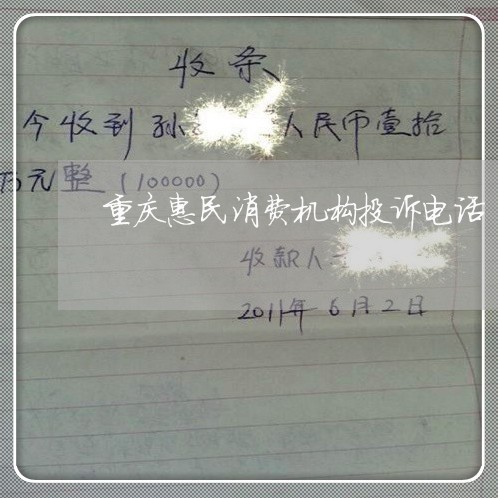 收条
今收到孙 人民币壹拾
万元整(100000)
重庆惠民消费机构投诉电话
收款人
2011年6月2日